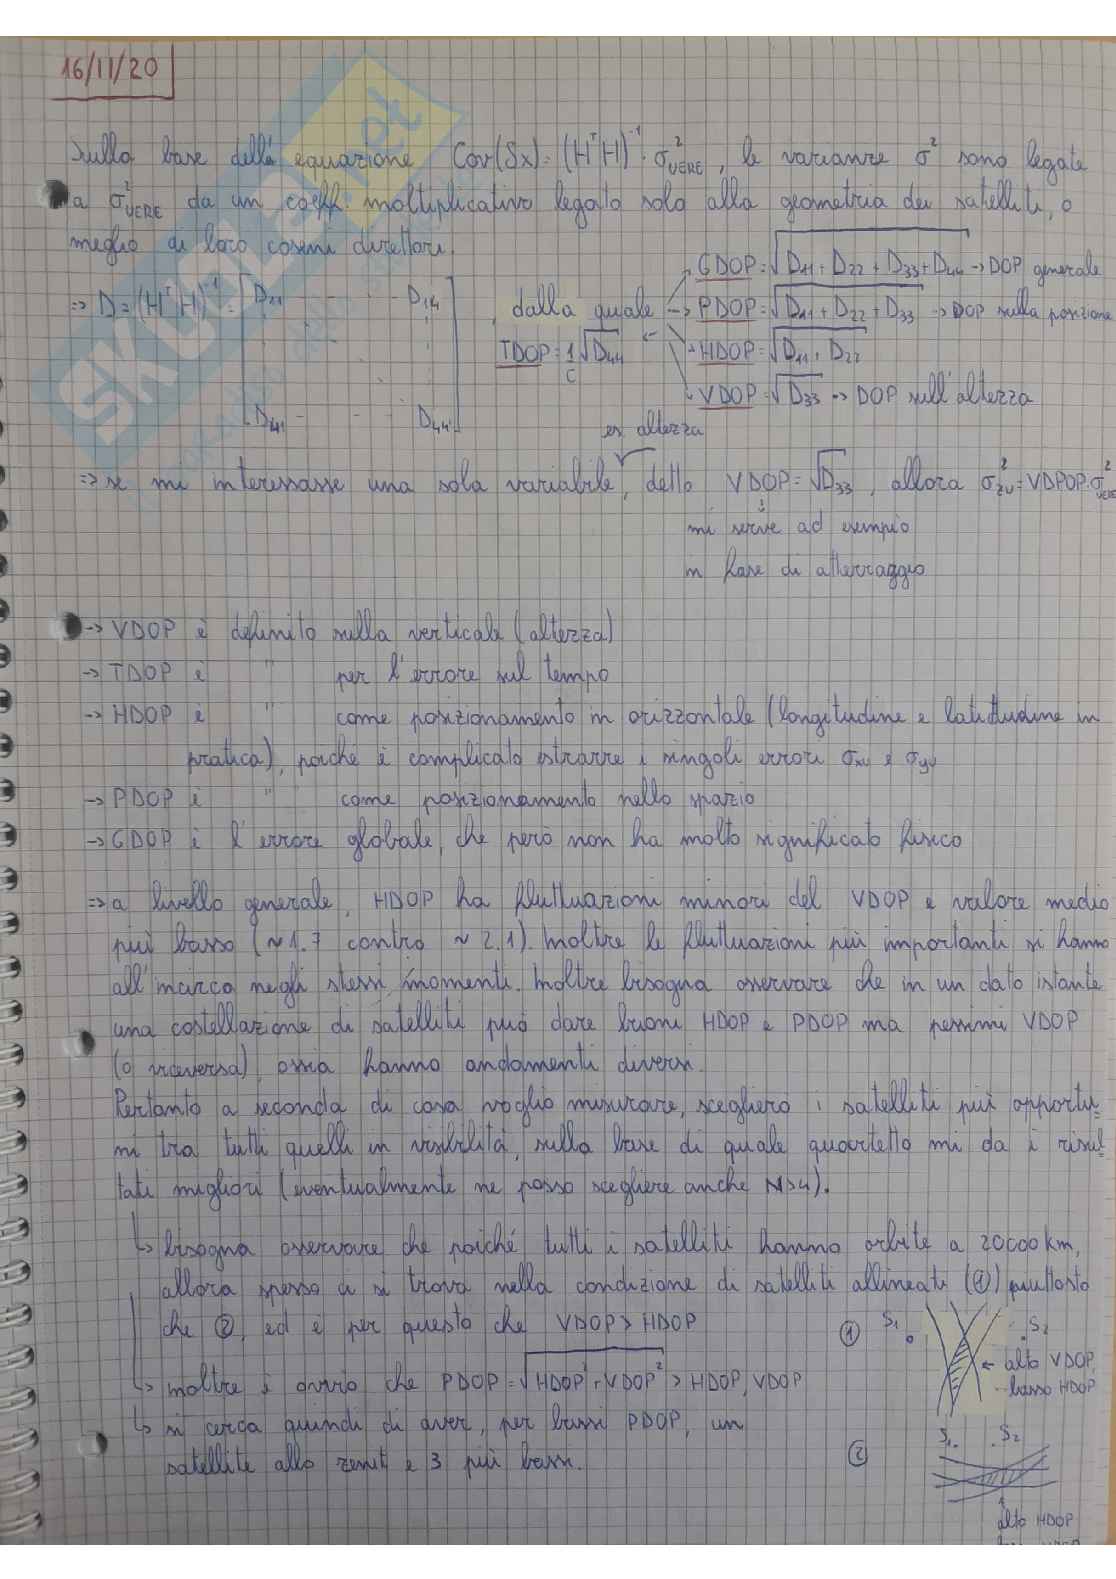 16/11/20
Sulla base della equazione Cov(δx) = (HᵀH)⁻¹ · σ²VERE, le varianze σ² sono legate
a σ²VERE da un coeff. moltiplicativo legato solo alla geometria dei satelliti, o
meglio ai loro coseni direttori.
GDOP = √D11 + D22 + D33 + D44 → DOP generale
⇒ D = (HᵀH)⁻¹ = [D11 - - - D14
, dalla quale → PDOP = √D11 + D22 + D33 → DOP sulla posizione
TDOP = 1/c √D44 ← HDOP = √D11 + D22
VDOP = √D33 → DOP sull'altezza
D41 - - - D44]
es altezza
⇒ se mi interessasse una sola variabile, detto VDOP = √D33, allora σ²zu = VDPOP · σ²VERE
mi serve ad esempio
in fase di atterraggio
→ VDOP è definito sulla verticale (altezza)
→ TDOP è " per l'errore sul tempo
→ HDOP è " come posizionamento in orizzontale (longitudine e latitudine in
pratica), poiché è complicato estrarre i singoli errori σxu e σyu
→ PDOP è " come posizionamento nello spazio
→ GDOP è l'errore globale, che però non ha molto significato fisico
⇒ a livello generale, HDOP ha fluttuazioni minori del VDOP e valore medio
più basso (~1.7 contro ~2.1). Inoltre le fluttuazioni più importanti si hanno
all'incirca negli stessi momenti. Inoltre bisogna osservare che in un dato istante
una costellazione di satelliti può dare buoni HDOP e PDOP ma pessimi VDOP
(o viceversa), ossia hanno andamenti diversi.
Pertanto a seconda di cosa voglio misurare, sceglierò i satelliti più opportu-
ni tra tutti quelli in visibilità, sulla base di quale quartetto mi da i risul-
tati migliori (eventualmente ne posso scegliere anche N>4).
↳ bisogna osservare che poiché tutti i satelliti hanno orbite a 20000 km,
allora spesso ci si trova nella condizione di satelliti allineati (1) piuttosto
che (2), ed è per questo che VDOP > HDOP
(1) S1 S2
← alto VDOP,
basso HDOP
↳ inoltre è ovvio che PDOP = √HDOP² + VDOP² > HDOP, VDOP
↳ si cerca quindi di aver, per bassi PDOP, un
satellite allo zenit e 3 più bassi.
(2) S1 S2
alto HDOP
SKUOLA.net